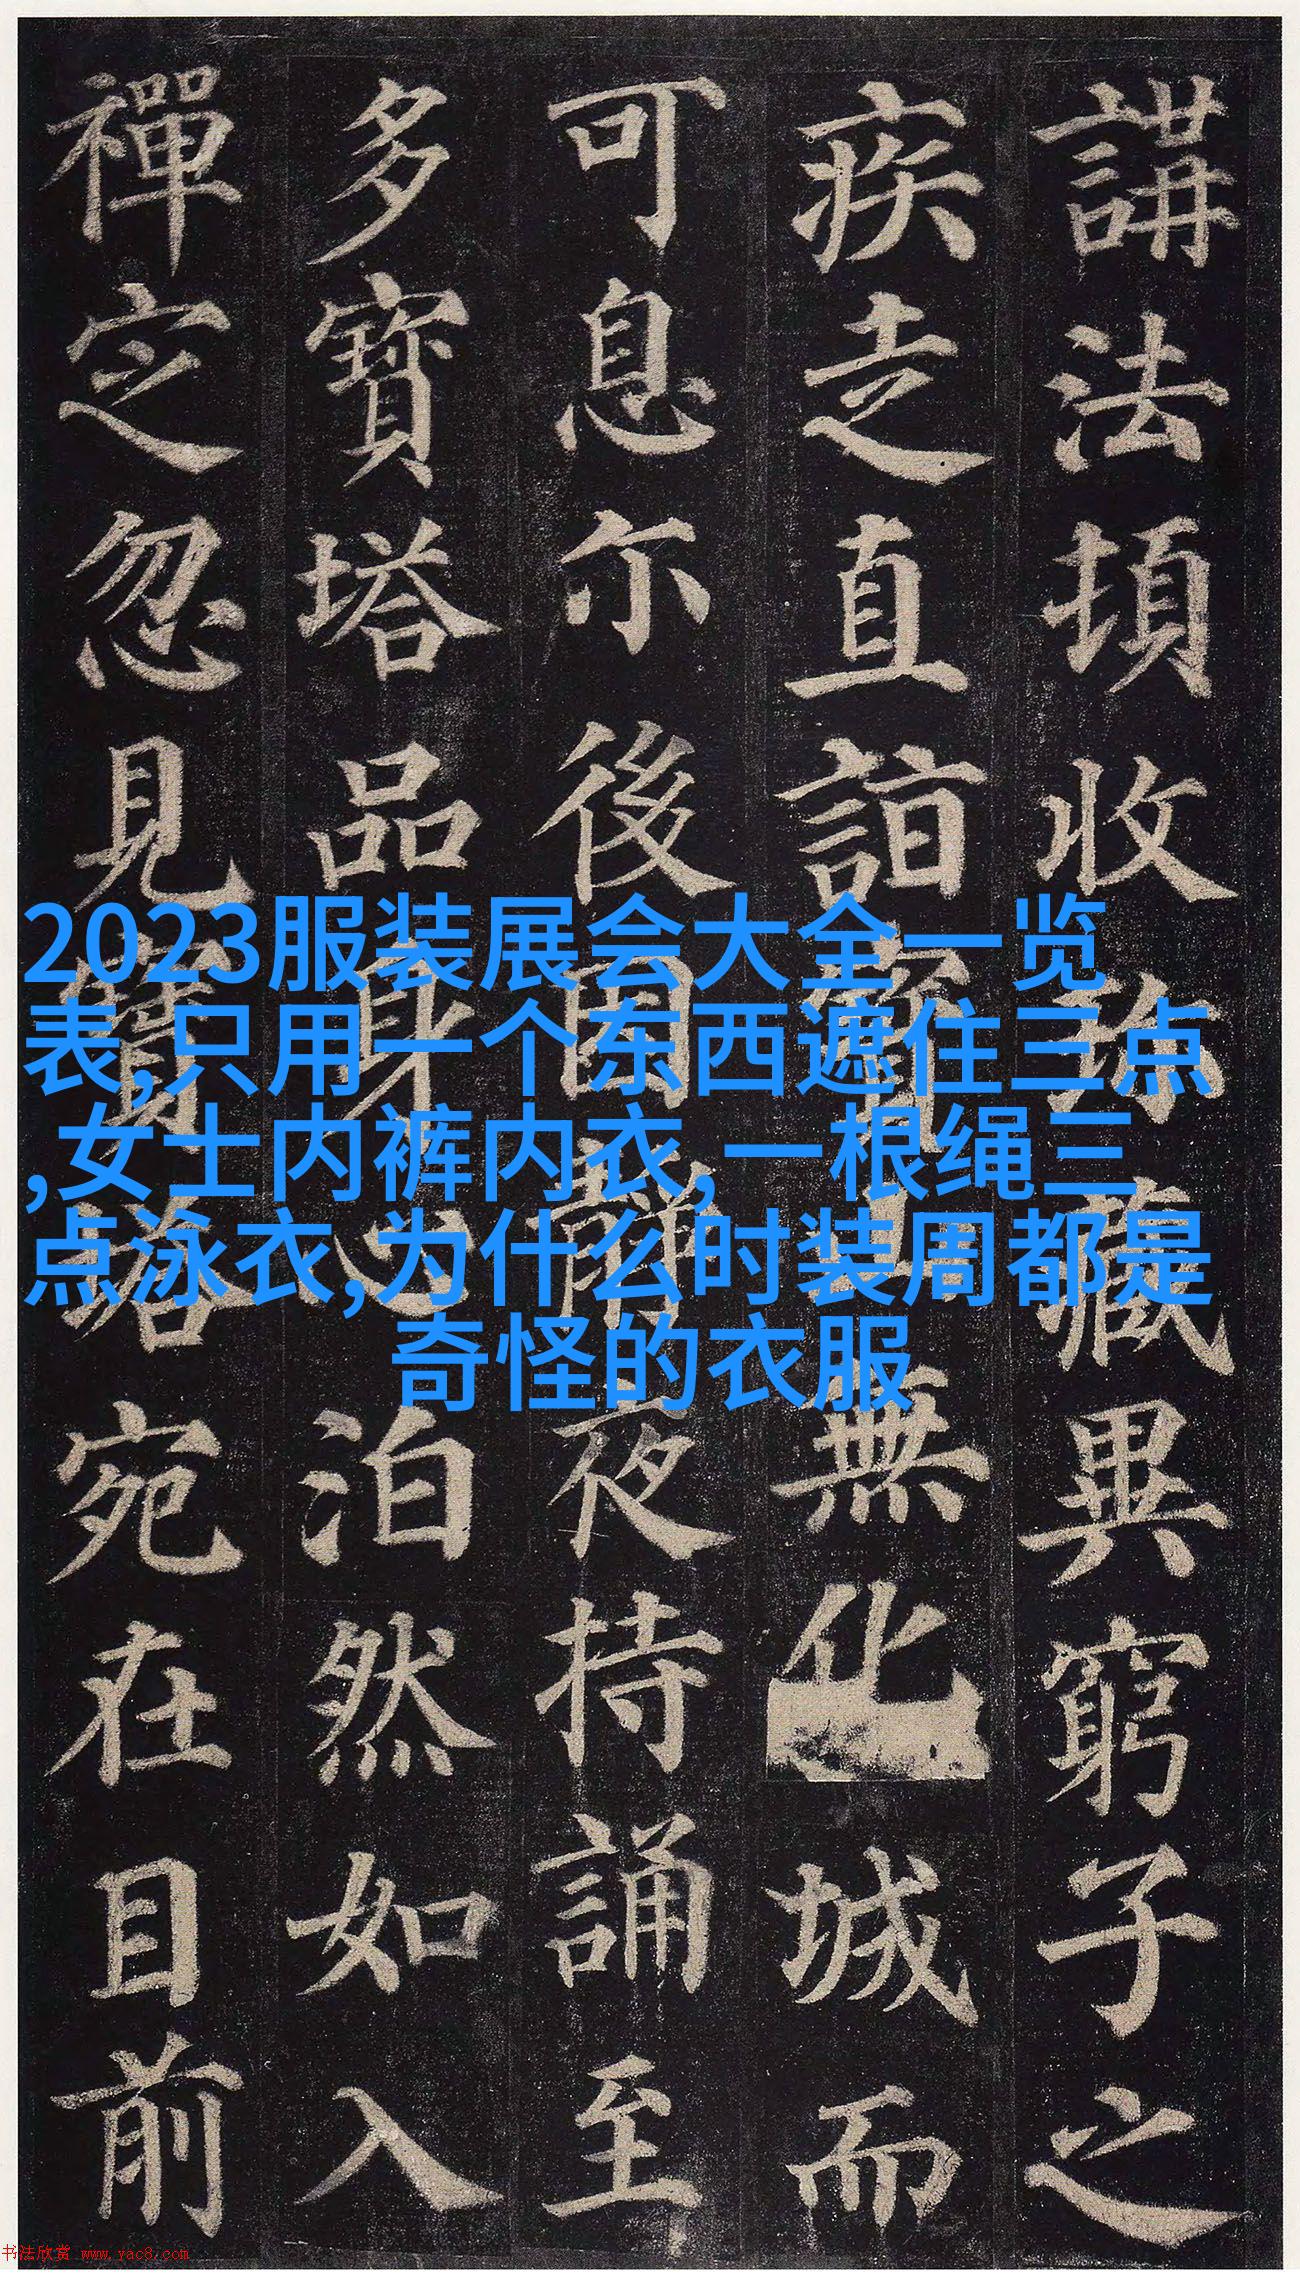 講法頓收珍藏異窮子之
疾走直詣寶山無化城而
可息尒後因靜夜持誦至
多寶塔品身心泊然如入
禪定忽見寶塔宛在目前
2023服装展会大全一览
表,只用一个东西遮住三点
,女士内裤内衣,一根绳三
点泳衣,为什么时装周都是
奇怪的衣服
书法欣赏 www.yac8.com